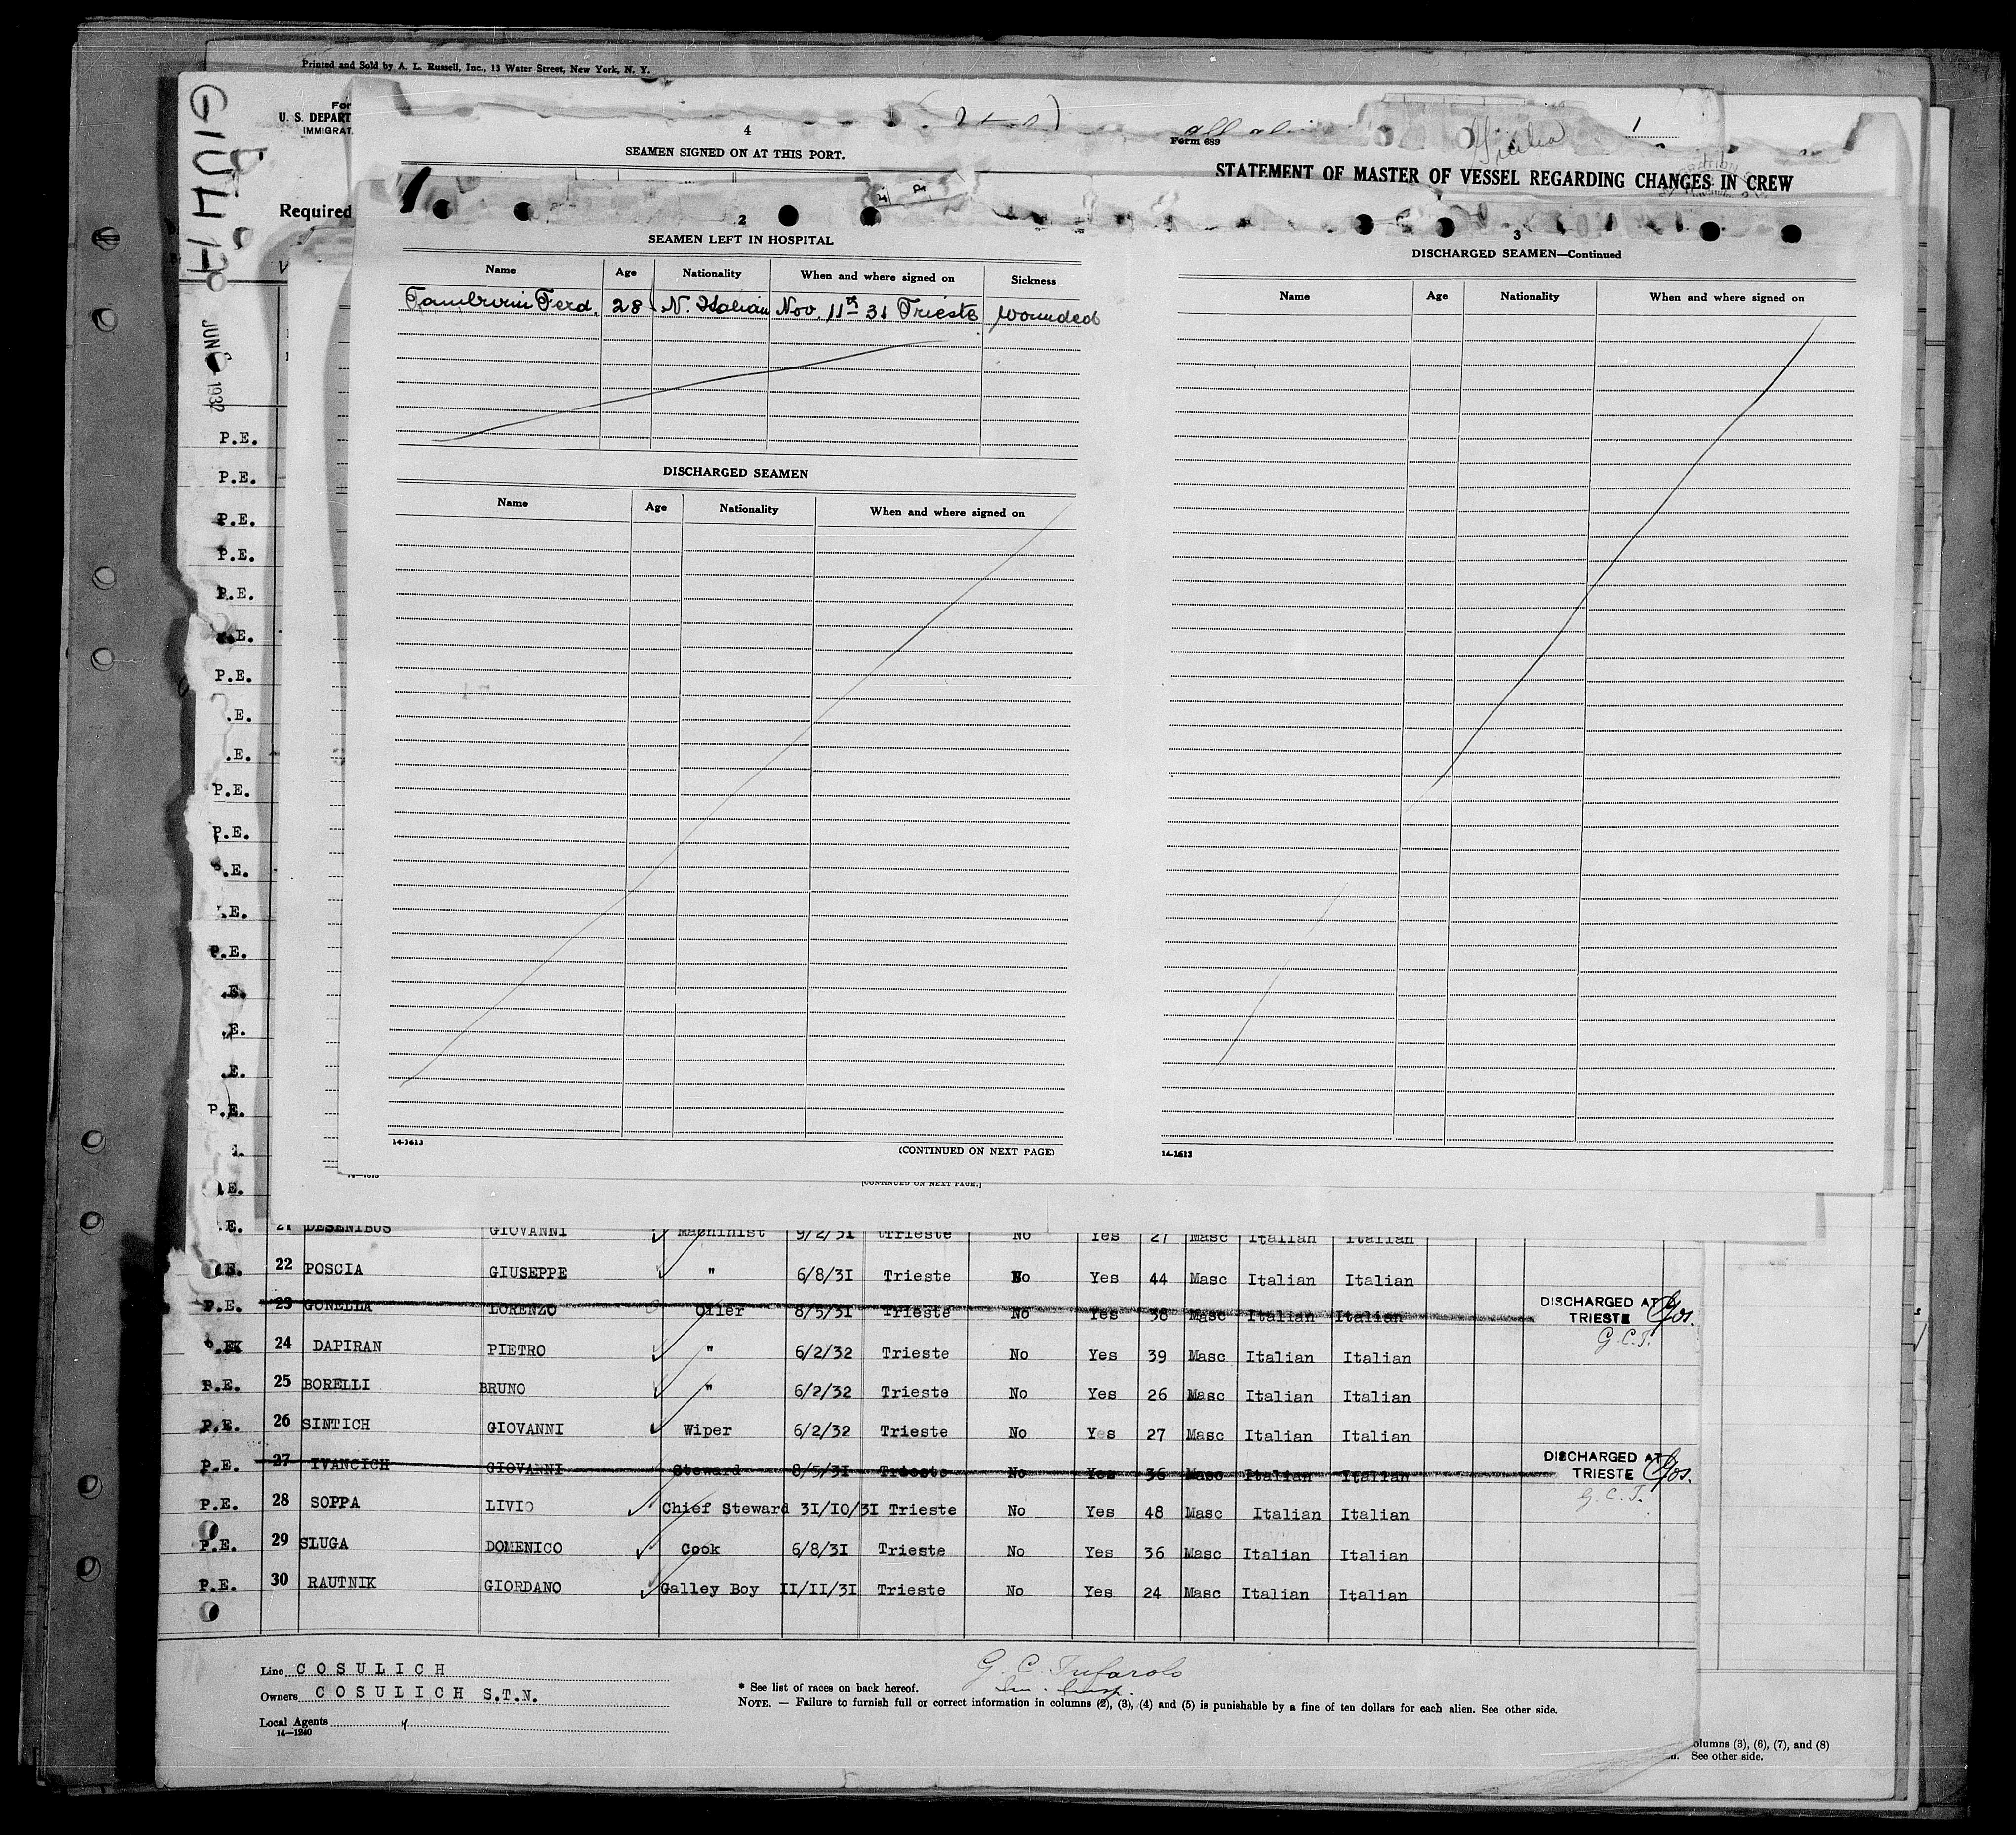 Printed and Sold by A. L. Russell, Inc., 13 Water Street, New York, N. Y.
For
U. S. DEPART
IMMIGRAT
Required
GIULIA
JUN 6 1932
4
SEAMEN SIGNED ON AT THIS PORT.
Form 689
1
STATEMENT OF MASTER OF VESSEL REGARDING CHANGES IN CREW
2
SEAMEN LEFT IN HOSPITAL
Name Age Nationality When and where signed on Sickness
Ferd. 28 N. Italian Nov. 11th 31 Trieste wounded
DISCHARGED SEAMEN
Name Age Nationality When and where signed on
14-1613
(CONTINUED ON NEXT PAGE)
3
DISCHARGED SEAMEN—Continued
Name Age Nationality When and where signed on
14-1613
[CONTINUED ON NEXT PAGE.]
P.E.
P.E.
P.E.
P.E.
P.E.
.E.
P.E.
.E.
.E.
P.E.
P.E.
P.E.
.E.
P.E.
.E.
.E.
.E.
P.E.
.E.
.E. 21 DESENIBUS GIOVANNI Machinist 9/2/31 Trieste No Yes 27 Masc Italian Italian
.E. 22 POSCIA GIUSEPPE " 6/8/31 Trieste No Yes 44 Masc Italian Italian
P.E. 23 GONELLA LORENZO Oiler 8/5/31 Trieste No Yes 38 Masc Italian Italian DISCHARGED AT TRIESTE
G.C.T.
24 DAPIRAN PIETRO " 6/2/32 Trieste No Yes 39 Masc Italian Italian
P.E. 25 BORELLI BRUNO " 6/2/32 Trieste No Yes 26 Masc Italian Italian
P.E. 26 SINTICH GIOVANNI Wiper 6/2/32 Trieste No Yes 27 Masc Italian Italian
P.E. 27 IVANCICH GIOVANNI Steward 8/5/31 Trieste No Yes 36 Masc Italian Italian DISCHARGED AT TRIESTE
G.C.T.
P.E. 28 SOPPA LIVIO Chief Steward 31/10/31 Trieste No Yes 48 Masc Italian Italian
P.E. 29 SLUGA DOMENICO Cook 6/8/31 Trieste No Yes 36 Masc Italian Italian
P.E. 30 RAUTNIK GIORDANO Galley Boy II/II/31 Trieste No Yes 24 Masc Italian Italian
Line COSULICH
Owners COSULICH S.T.N.
Local Agents
14—1240
* See list of races on back hereof.
NOTE. — Failure to furnish full or correct information in columns (2), (3), (4) and (5) is punishable by a fine of ten dollars for each alien. See other side.
olumns (3), (6), (7), and (8)
See other side.